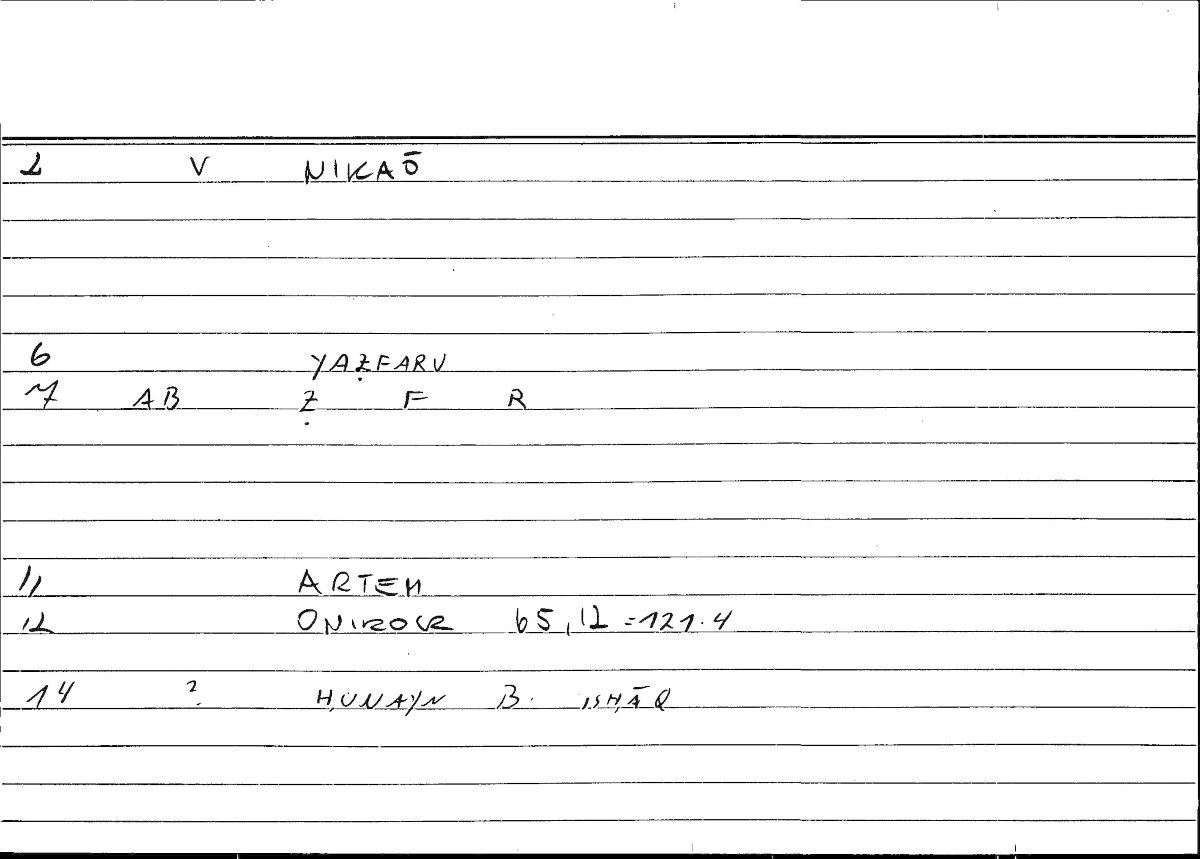 2 V NIKAŌ
6 YAẒFARU
7 AB Ẓ F R
11 ARTEM
12 ONIROCR 65,12 =121.4
14 ? ḤUNAYN B. ISḤĀQ